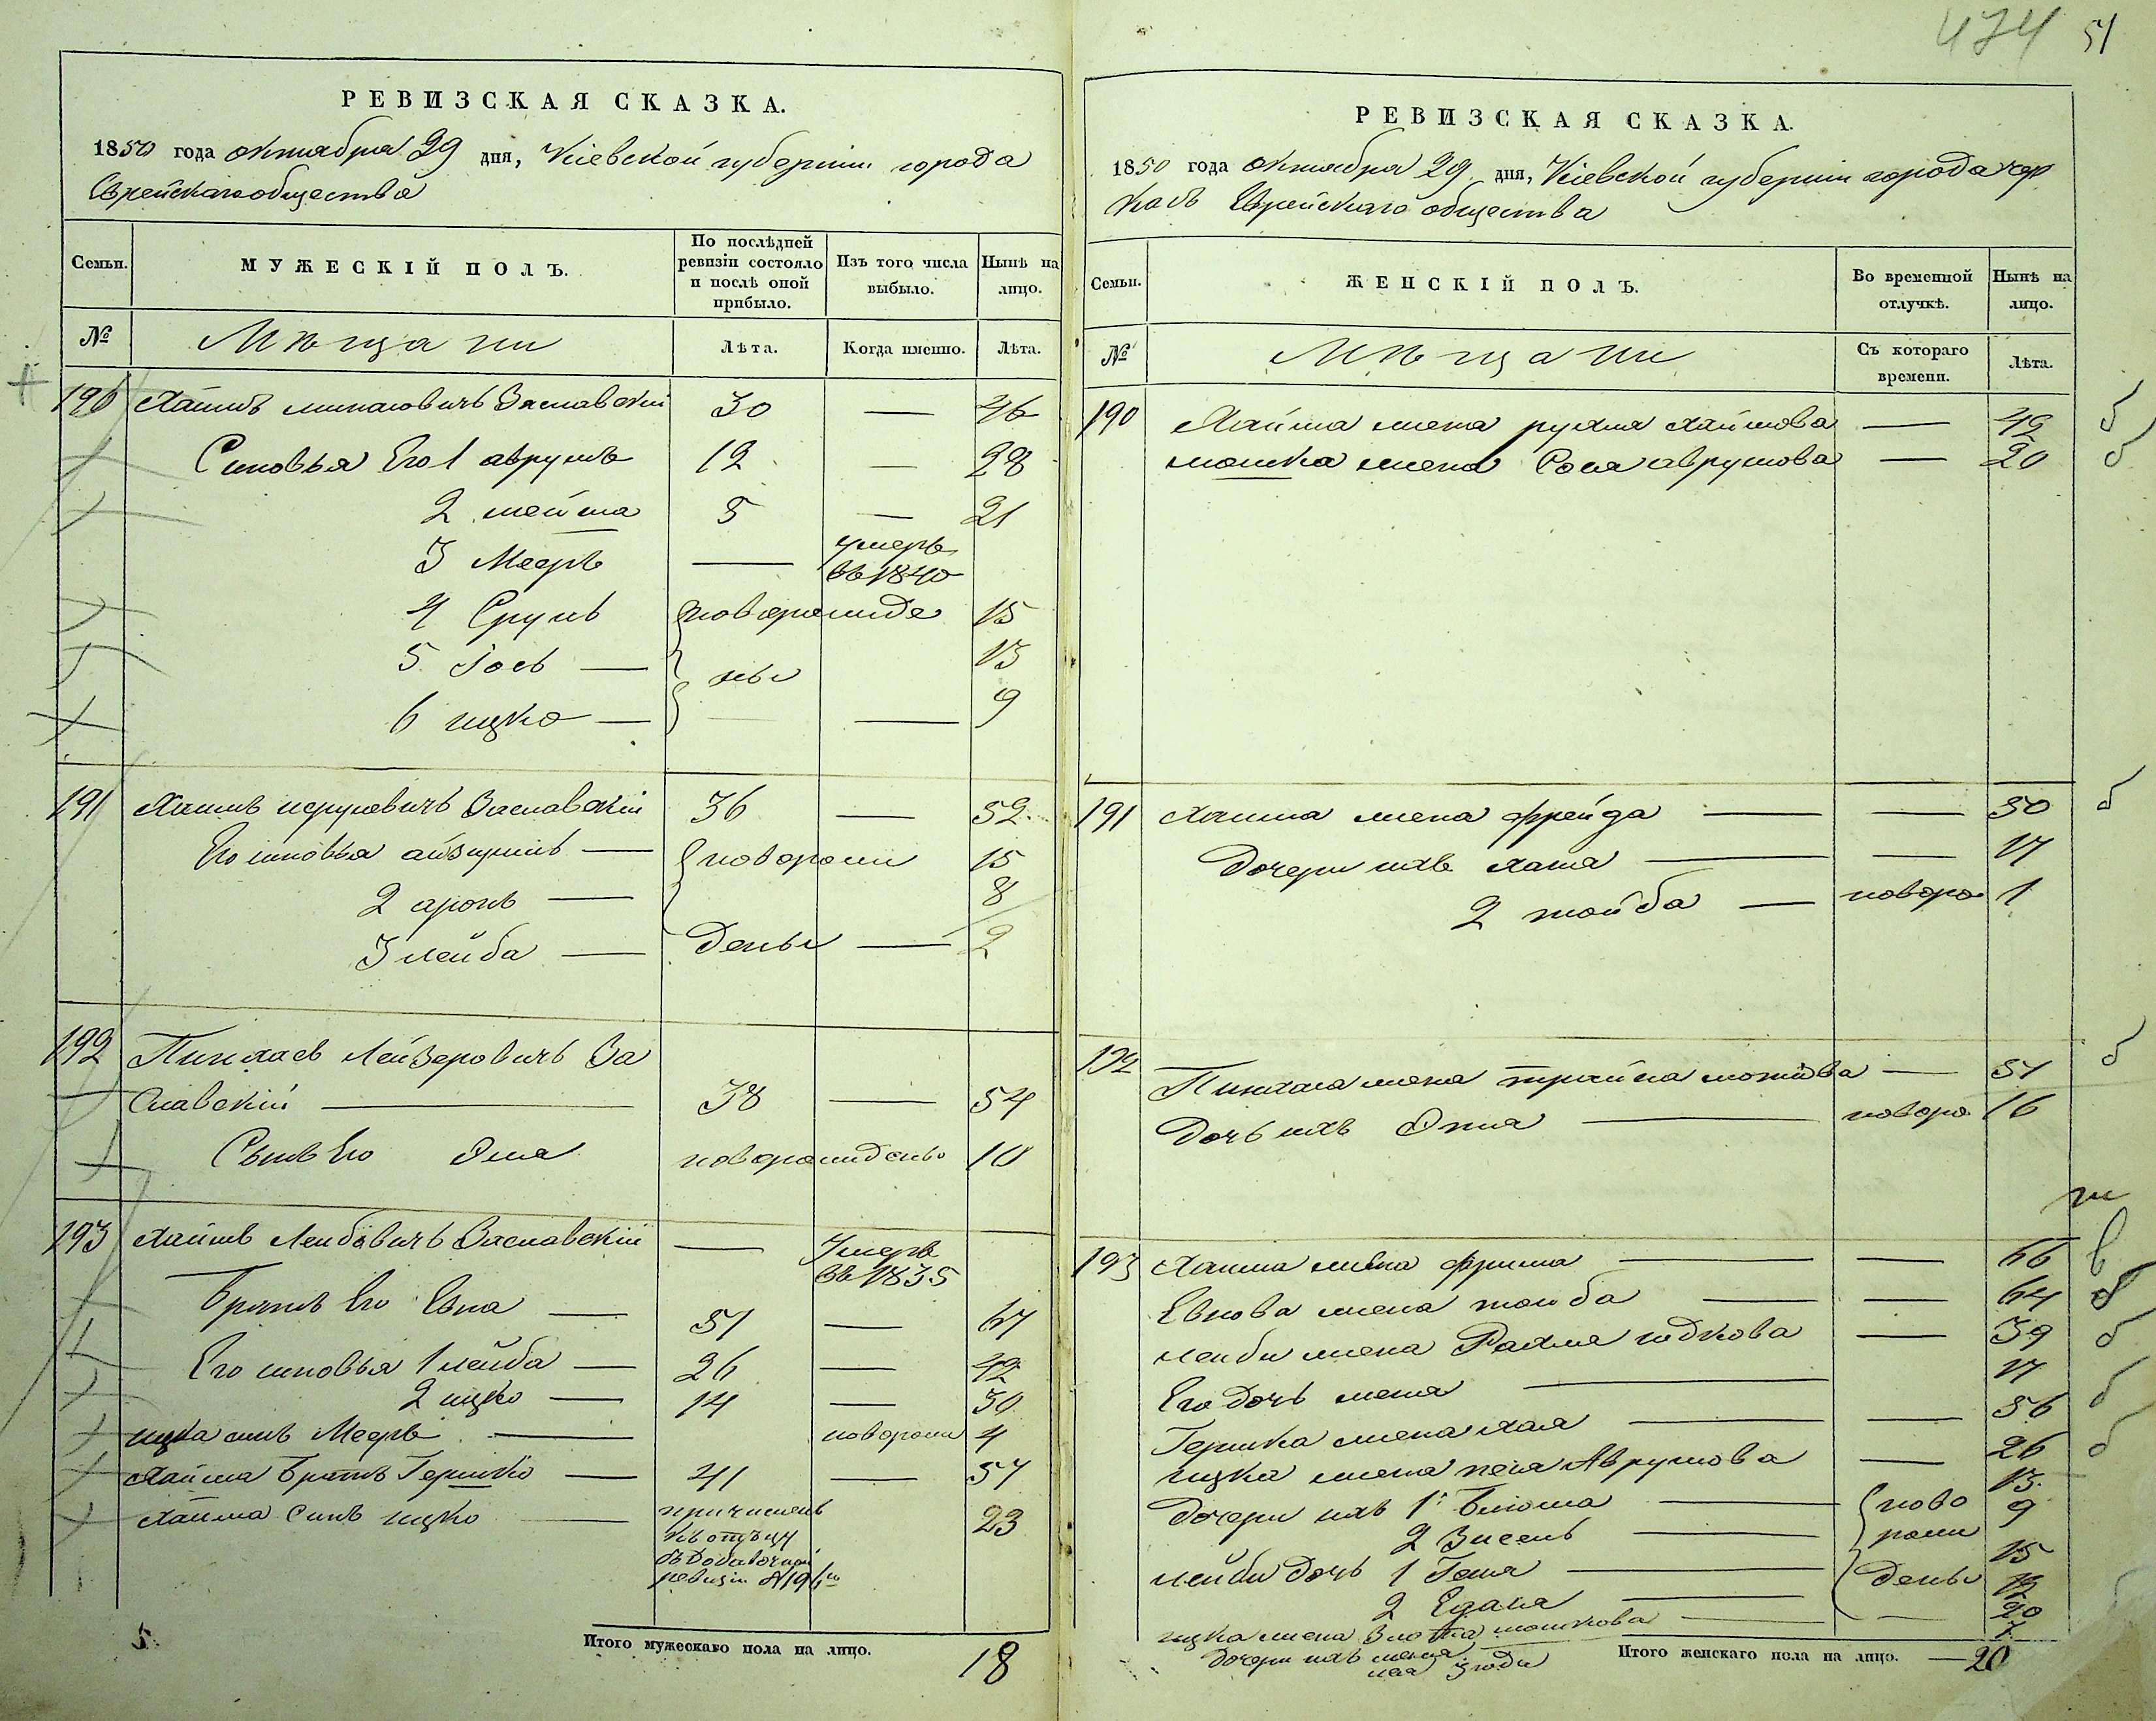 474 51
РЕВИЗСКАЯ СКАЗКА.
1850 года октября 29 дня, Кіевской губерніи города
Еврейскаго общества
Семьи. МУЖЕСКІЙ ПОЛЪ. По послѣдней ревизіи состояло и послѣ оной прибыло. Изъ того числа выбыло. Нынѣ на лицо.
№ Мѣщани Лѣта. Когда именно. Лѣта.
190 Хаимъ Заславскій 30 — 46
Сыновья Его 1 аврумъ 12 — 28
2 5 — 21
3 Мееръ — умеръ въ 1840
4 Срулъ новорожде 15
5 Іосъ — ны 13
6 ицко — — 9
191 Хаимъ исрулевичъ Заславскій 36 — 52
Его сыновья айзикъ — новорож 15
2 аронъ — 8
3 лейба — дены — 2
192 Пинхасъ Лейзеровичъ За
славскій — 38 — 54
Сынъ Его новорожденъ 10
193 Хаимъ Лейбовичъ Заславскій — Умеръ въ 1835
Братъ Его Евна — 51 — 67
Его сыновья 1 лейба — 26 — 42
2 ицко — 14 — 30
ицка сынъ Мееръ — новорож 4
Хаима братъ Гершко — 41 — 57
Хаима сынъ ицко — причисленъ 23
къ отъцу
въ добавочной
ревизіи №
Итого мужескаго пола на лицо. 18
РЕВИЗСКАЯ СКАЗКА.
1850 года октября 29 дня, Кіевской губерніи города чер
касъ Еврейскаго общества
Семьи. ЖЕНСКІЙ ПОЛЪ. Во временной отлучкѣ. Нынѣ на лицо.
№ Мѣщани Съ котораго времени. Лѣта.
190 Хаима жена рухля хаимова — 49
мошка жена Сося аврумова — 20
191 Хаима жена фрейда — — 50
Дочери ихъ хана — — 17
2 тойба — новоро 1
192 Пинхаса жена — 51
Дочь ихъ — новоро 16
193 Хаима жена фрима — — 66
Евнова жена тойба — — 64
лейби жена Рахля юдкова — 39
Его дочь — 17
Гершка жена хая — — 56
ицка жена песя Аврумова — 26
Дочери ихъ 1 — ново 13
2 — рож 9
лейби дочь 1 — дены 15
2 — 12
ицка жена Злотка мошкова — — 20
Дочери ихъ 7
Итого женскаго пола на лицо. — 20